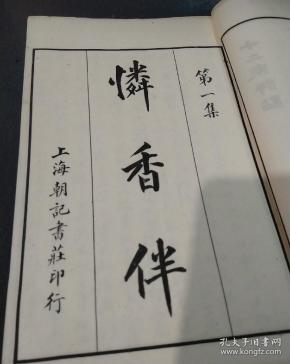 第一集
憐香伴
上海朝記書莊印行
孔夫子旧书网